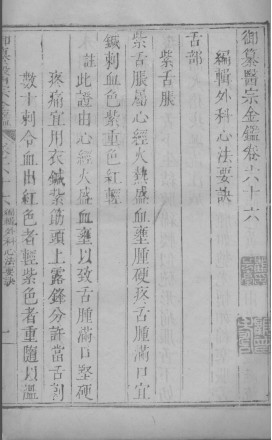 御纂醫宗金鑑卷六十六
編輯外科心法要訣
舌部
紫舌脹
紫舌脹屬心經火熱盛血壅腫硬疼舌腫滿口宜
鍼刺血色紫重色紅輕
註此證由心經火盛血壅以致舌腫滿口堅硬
疼痛宜用衣鍼紮筯頭上露鋒分許當舌刺
數十刺令血出紅色者輕紫色者重隨以溫
編輯外科心法要訣
一